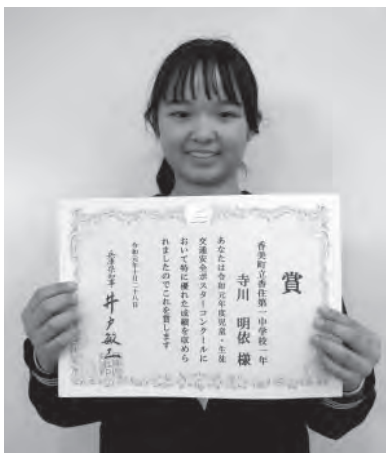 賞
香美町立香住第一中学校一年
寺川 明依 様
あなたは令和元年度児童・生徒
交通安全ポスターコンクールに
おいて特に優れた成績を収めら
れましたのでこれを賞します
令和元年十月二十八日
兵庫県知事 井戸敏三